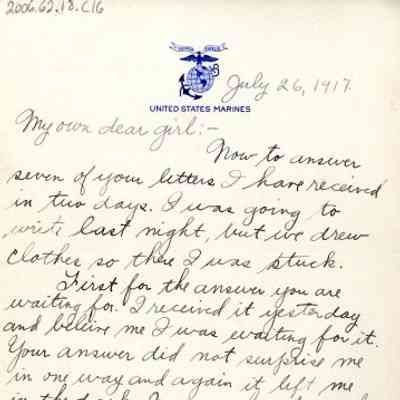 2006.62.18.C16
SEMPER FIDELIS
July 26, 1917.
UNITED STATES MARINES
My own dear girl:-
Now to answer
seven of your letters I have received
in two days. I was going to
write last night, but we drew
clothes so there I was stuck.
First for the answer you are
waiting for. I received it yesterday
and believe me I was waiting for it.
Your answer did not surprise me
in one way and again it left me
in the dark.